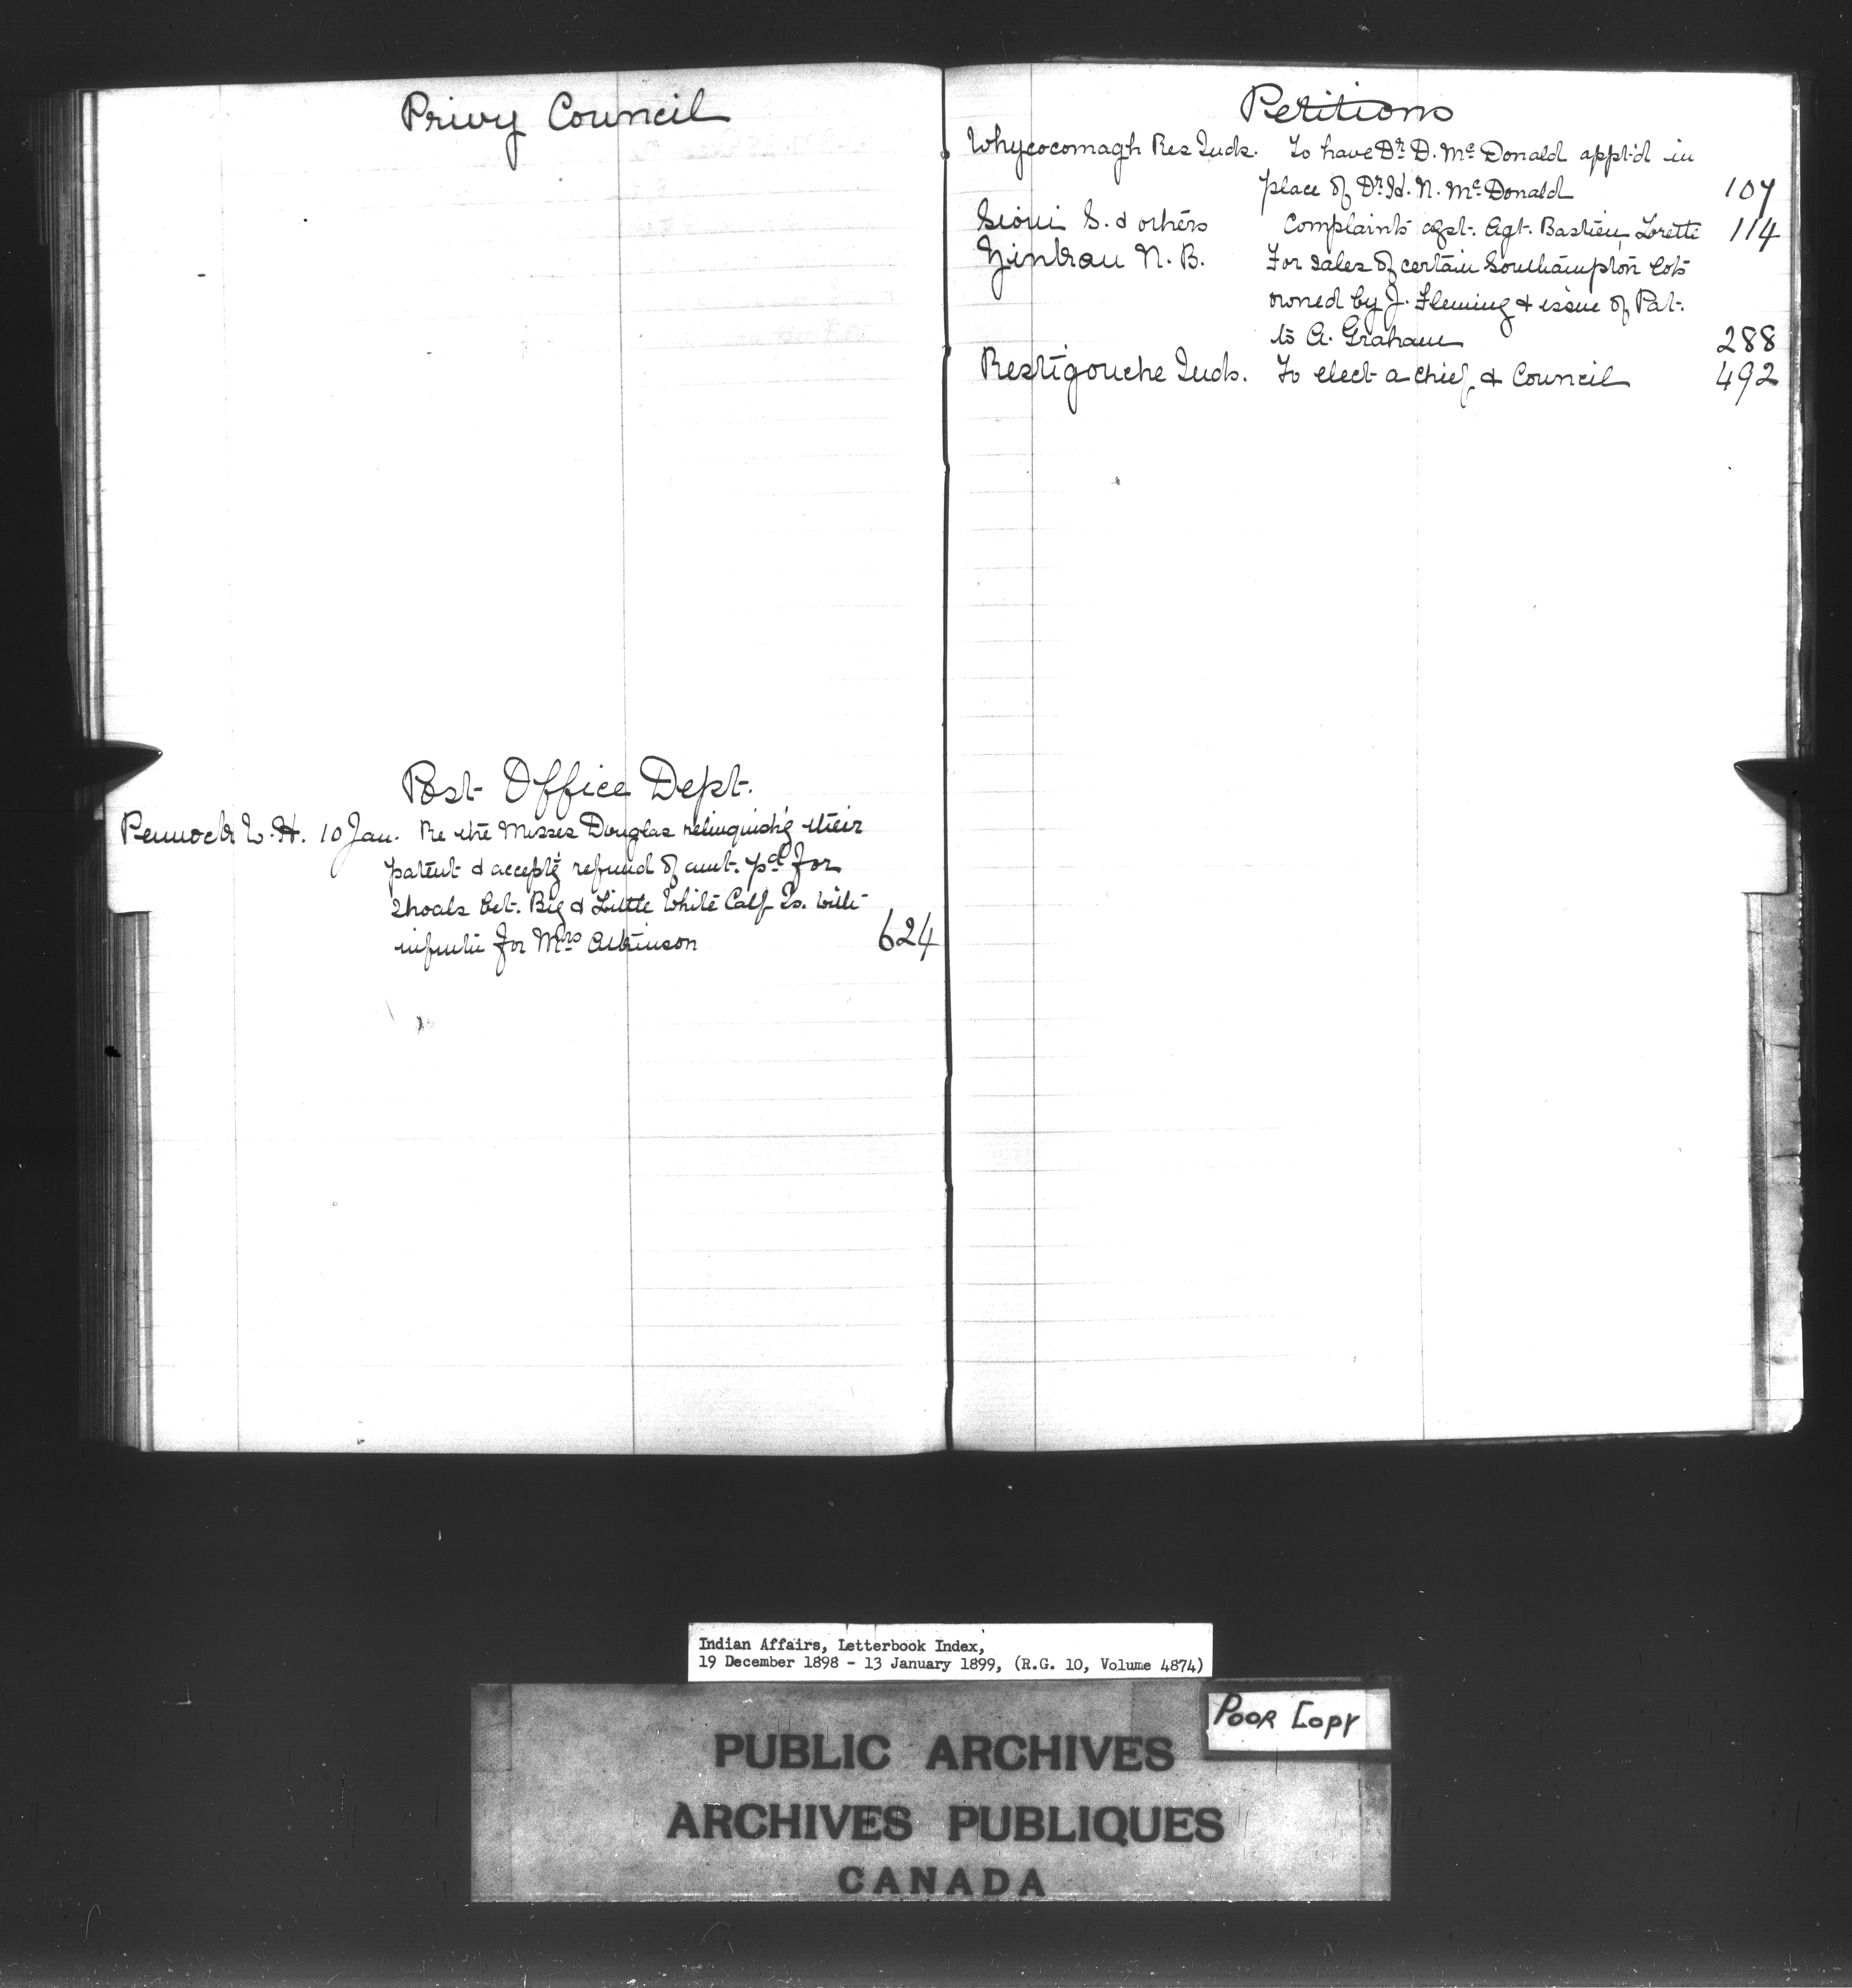 Privy Council
Post Office Dept.
Pennock W. H. 10 Jan. Re the Misses Douglas relinquish'g their
patent & accept'g refund of amt. pd for
Shoals bet. Big & Little White Calf Is. with
for Mrs Atkinson 624
Petitions
Whycocomagh Res Inds. To have Dr. D. McDonald appt'd in
place of Dr. H. N. McDonald 107
Sioui S. & others Complaints agst. Agt. Bastien, Lorette 114
N. B. For sales of certain Southampton lots
owned by J. Fleming & issue of Pat.
to A. Graham 288
Restigouche Inds. To elect a Chief & Council 492
Indian Affairs, Letterbook Index,
19 December 1898 - 13 January 1899, (R.G. 10, Volume 4874)
POOR COPY
PUBLIC ARCHIVES
ARCHIVES PUBLIQUES
CANADA